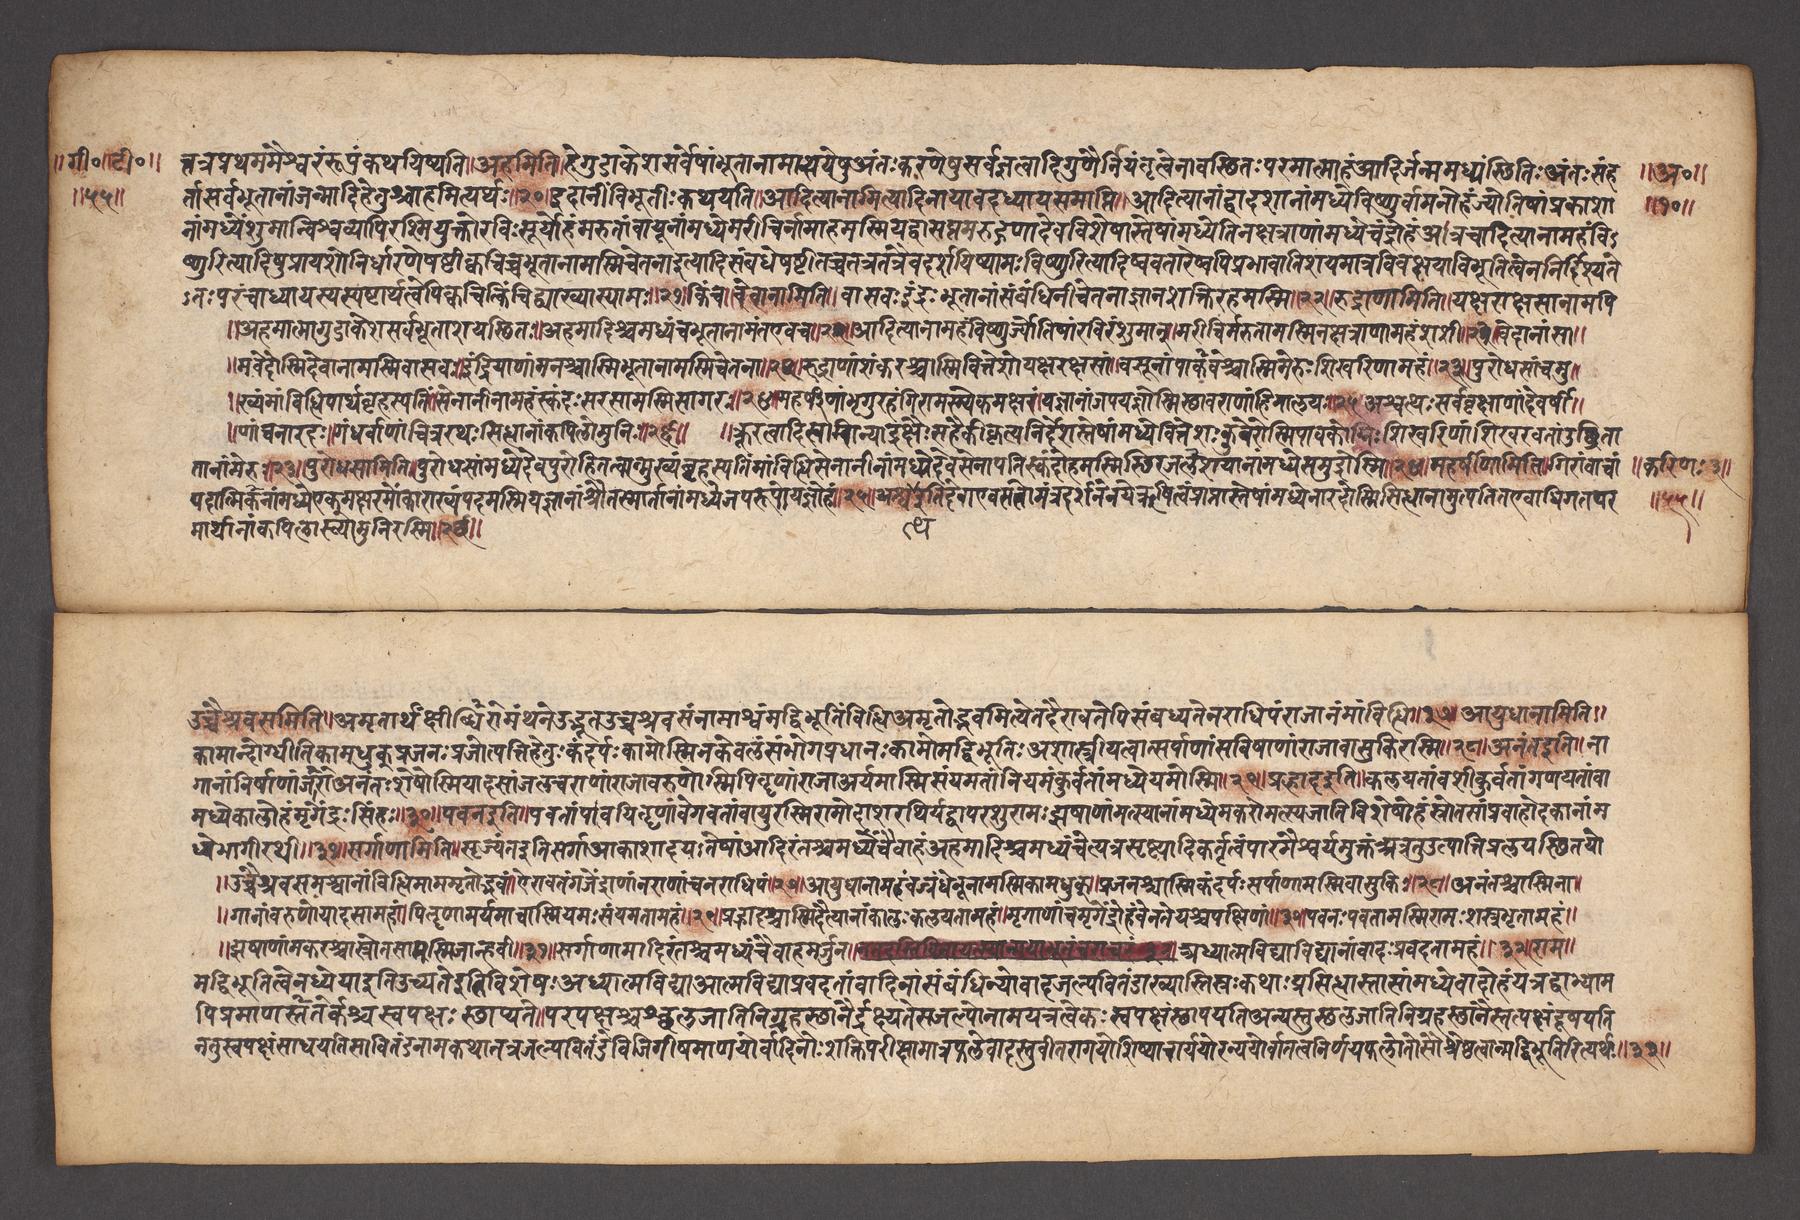 ॥गी०॥टी०॥
॥५५॥
॥अ०॥
॥१०॥
तत्रप्रथममैश्वरंरूपंकथयिष्यति॥अहमिति॥हेगुडाकेशसर्वेषांभूतानामाशयेषुअंतःकरणेषुसर्वज्ञत्वादिगुणैर्नियंतृत्वेनावस्थितःपरमात्माहंआदिर्जन्ममध्यंस्थितिःअंतःसंह
र्तासर्वभूतानांजन्मादिहेतुश्चाहमित्यर्थः॥२०॥इदानींविभूतीःकथयति॥आदित्यानामित्यादिनायावदध्यायसमाप्ति॥आदित्यानांद्वादशानांमध्येविष्णुर्वामनोहंज्योतिषांप्रकाशा
नांमध्येंशुमान्विश्वव्यापिरश्मियुक्तोरविःसूर्योहंमरुतांवायूनांमध्येमरीचिर्नामाहमस्मियद्वासप्तमरुद्गणादेवविशेषास्तेषांमध्येतिनक्षत्राणांमध्येचंद्रोहंअत्रचादित्यानामहंवि
ष्णुरित्यादिषुप्रायशोनिर्धारणेषष्ठीक्वचिच्चभूतानामस्मिचेतनाइत्यादिसंबंधेषष्टीतच्चतत्रतत्रैवदर्शयिष्यामःविष्णुरित्यादिष्ववतारेष्वपिप्रभावातिशयमात्रविवक्षयाविभूतित्वेननिर्दिश्यते
ऽतःपरंचाध्यायस्यस्पष्टार्थत्वेपिक्वचित्किंचिद्व्याख्यास्यामः॥२१॥किंच॥वेदानामिति॥वासवःइंद्रःभूतानांसंबंधिनीचेतनाज्ञानशक्तिरहमस्मि॥२२॥रुद्राणामिति॥यक्षराक्षसानामपि
॥अहमात्मागुडाकेशसर्वभूताशयस्थितः॥अहमादिश्चमध्यंचभूतानामंतएवच॥२०॥आदित्यानामहंविष्णुर्ज्योतिषांरविरंशुमान्॥मरीचिर्मरुतामस्मिनक्षत्राणामहंशशी॥२१॥वेदानांसा॥
॥मवेदोस्मिदेवानामस्मिवासवः॥इंद्रियाणांमनश्चास्मिभूतानामस्मिचेतना॥२२॥रुद्राणांशंकरश्चास्मिवित्तेशोयक्षरक्षसां॥वसूनांपावकश्चास्मिमेरुःशिखरिणामहं॥२३॥पुरोधसांचमु॥
॥ख्यंमांविधिपार्थबृहस्पतिं॥सेनानीनामहंस्कंदःसरसामस्मिसागरः॥२४॥महर्षीणांभृगुरहंगिरामस्म्येकमक्षरं॥यज्ञानांजपयज्ञोस्मिस्थावराणांहिमालयः॥२५अश्वत्थःसर्ववृक्षाणांदेवर्षी॥
॥णांचनारदः॥गंधर्वाणांचित्ररथःसिद्धानांकपिलोमुनिः॥२६॥ ॥क्रूरत्वादिसामान्याद्रक्षोभिःसहैकीकृत्यनिर्देशस्तेषांमध्येवित्तेशःकुबेरोस्मिपावकोग्निःशिखरिणांशिखरवतांउच्छ्रिता
तानांमेरुः॥२३॥पुरोधसामिति॥पुरोधसांमध्येदेवपुरोहितत्वान्मुख्यंबृहस्पतिंमांविधिसेनानीनांमध्येदेवसेनापतिस्कंदोहमस्मिस्थिरजलाशयानांमध्येसमुद्रोस्मि॥२४॥महर्षीणामिति॥गिरांवाचां
॥करिणः३॥
॥५५॥
पदात्मिकानांमध्येएकमक्षरमोंकाराख्यंपदमस्मियज्ञानांश्रौतस्मार्तानांमध्येजपरूपोयज्ञोहं॥२५॥अश्वत्थइतिदेवाएवसंतोमंत्रदर्शनेनयेऋषित्वंप्राप्तास्तेषांमध्येनारदोस्मिसिद्धानामुत्पतितएवाधिगतपर
मार्थानांकपिलाख्योमुनिरस्मि॥२६॥
उच्चैश्रवसमिति॥अमृतार्थंक्षीराब्धिमंथनेउद्भूतउच्चैश्रवसंनामाश्वंमद्विभूतिंविधिअमृतोद्भवमित्येतदैरावतेपिसंबध्यतेनराधिपंराजानंमांविधि॥२७॥आयुधानामिति॥
कामान्दोग्धीतिकामधुक्प्रजनःप्रजोत्पत्तिहेतुःकंदर्पःकामोस्मिनकेवलंसंभोगप्रधानःकामोमद्विभूतिःअशास्त्रीयत्वात्सर्पाणांसविषाणांराजावासुकिरस्मि॥२८॥अनंतइति॥ना
गानांनिर्विषाणांराजाअनंतःशेषोस्मियादसांजलचराणांराजावरुणोस्मिपितॄणांराजाअर्यमास्मिसंयमतांनियमंकुर्वतांमध्येयमोस्मि॥२९॥प्रह्लादइति॥कलयतांवशीकुर्वतांगणयतांवा
मध्येकालोहंमृगेंद्रःसिंहः॥३०॥पवनइति॥पवतांपावयितॄणांवेगवतांवायुरस्मिरामोदाशरथिर्यद्वापरशुरामःझषाणांमत्स्यानांमध्येमकरोमत्स्यजातिविशेषोहंस्रोतसांप्रवाहोदकानांम
ध्येभागीरथी॥३१॥सर्गाणामिति॥सृज्यंतइतिसर्गाआकाशादयःतेषांआदिरंतश्चमध्यंचैवाहंअहमादिश्चमध्यंचेत्यत्रसृष्ट्यादिकर्तृत्वंपारमैश्वर्यमुक्तंअत्रतुउत्पत्तिप्रलयस्थितयो
॥उच्चैश्रवसमश्वानांविधिमाममृतोद्भवं॥ऐरावतंगजेंद्राणांनराणांचनराधिपं॥२७॥आयुधानामहंवज्रंधेनूनामस्मिकामधुक्॥प्रजनश्चास्मिकंदर्पःसर्पाणामस्मिवासुकिः॥२८॥अनंतश्चास्मिना॥
॥गानांवरुणोयादसामहं॥पितॄणामर्यमाचास्मियमःसंयमतामहं॥२९॥प्रह्लादश्चास्मिदैत्यानांकालःकलयतामहं॥मृगाणांचमृगेंद्रोहंवैनतेयश्चपक्षिणां॥३०॥पवनःपवतामस्मिरामःशस्त्रभृतामहं॥
॥झषाणांमकरश्चास्मिस्रोतसामस्मिजान्हवी॥३१॥सर्गाणामादिरंतश्चमध्यंचैवाहमर्जुन॥अध्यात्मविद्याविद्यानांवादःप्रवदतामहं॥३२॥राम॥
मद्विभूतित्वेनध्येयाइतिउच्यतेइतिविशेषःअध्यात्मविद्याआत्मविद्याप्रवदतांवादिनांसंबंधिन्योवादजल्पवितंडाख्यास्तिस्रःकथाःप्रसिद्धास्तासांमध्येवादोहंयत्रद्वाभ्याम
पिप्रमाणस्तर्कतश्चस्वपक्षःस्थाप्यते॥परपक्षश्चछलजातिनिग्रहस्थानैर्दूष्यतेसजल्पोनामयत्रत्वेकःस्वपक्षंस्थापयतिअन्यस्तुछलजातिनिग्रहस्थानैस्तत्पक्षंदूषयति
नतुस्वपक्षंसाधयतिसावितंडानामकथातत्रजल्पवितंडेविजिगीषमाणयोर्वादिनोःशक्तिपरीक्षामात्रफलेवादस्तुवीतरागयोःशिष्याचार्ययोरन्ययोर्वातत्वनिर्णयफलोतोसौश्रेष्ठत्वान्मद्विभूतिरित्यर्थः॥३२॥